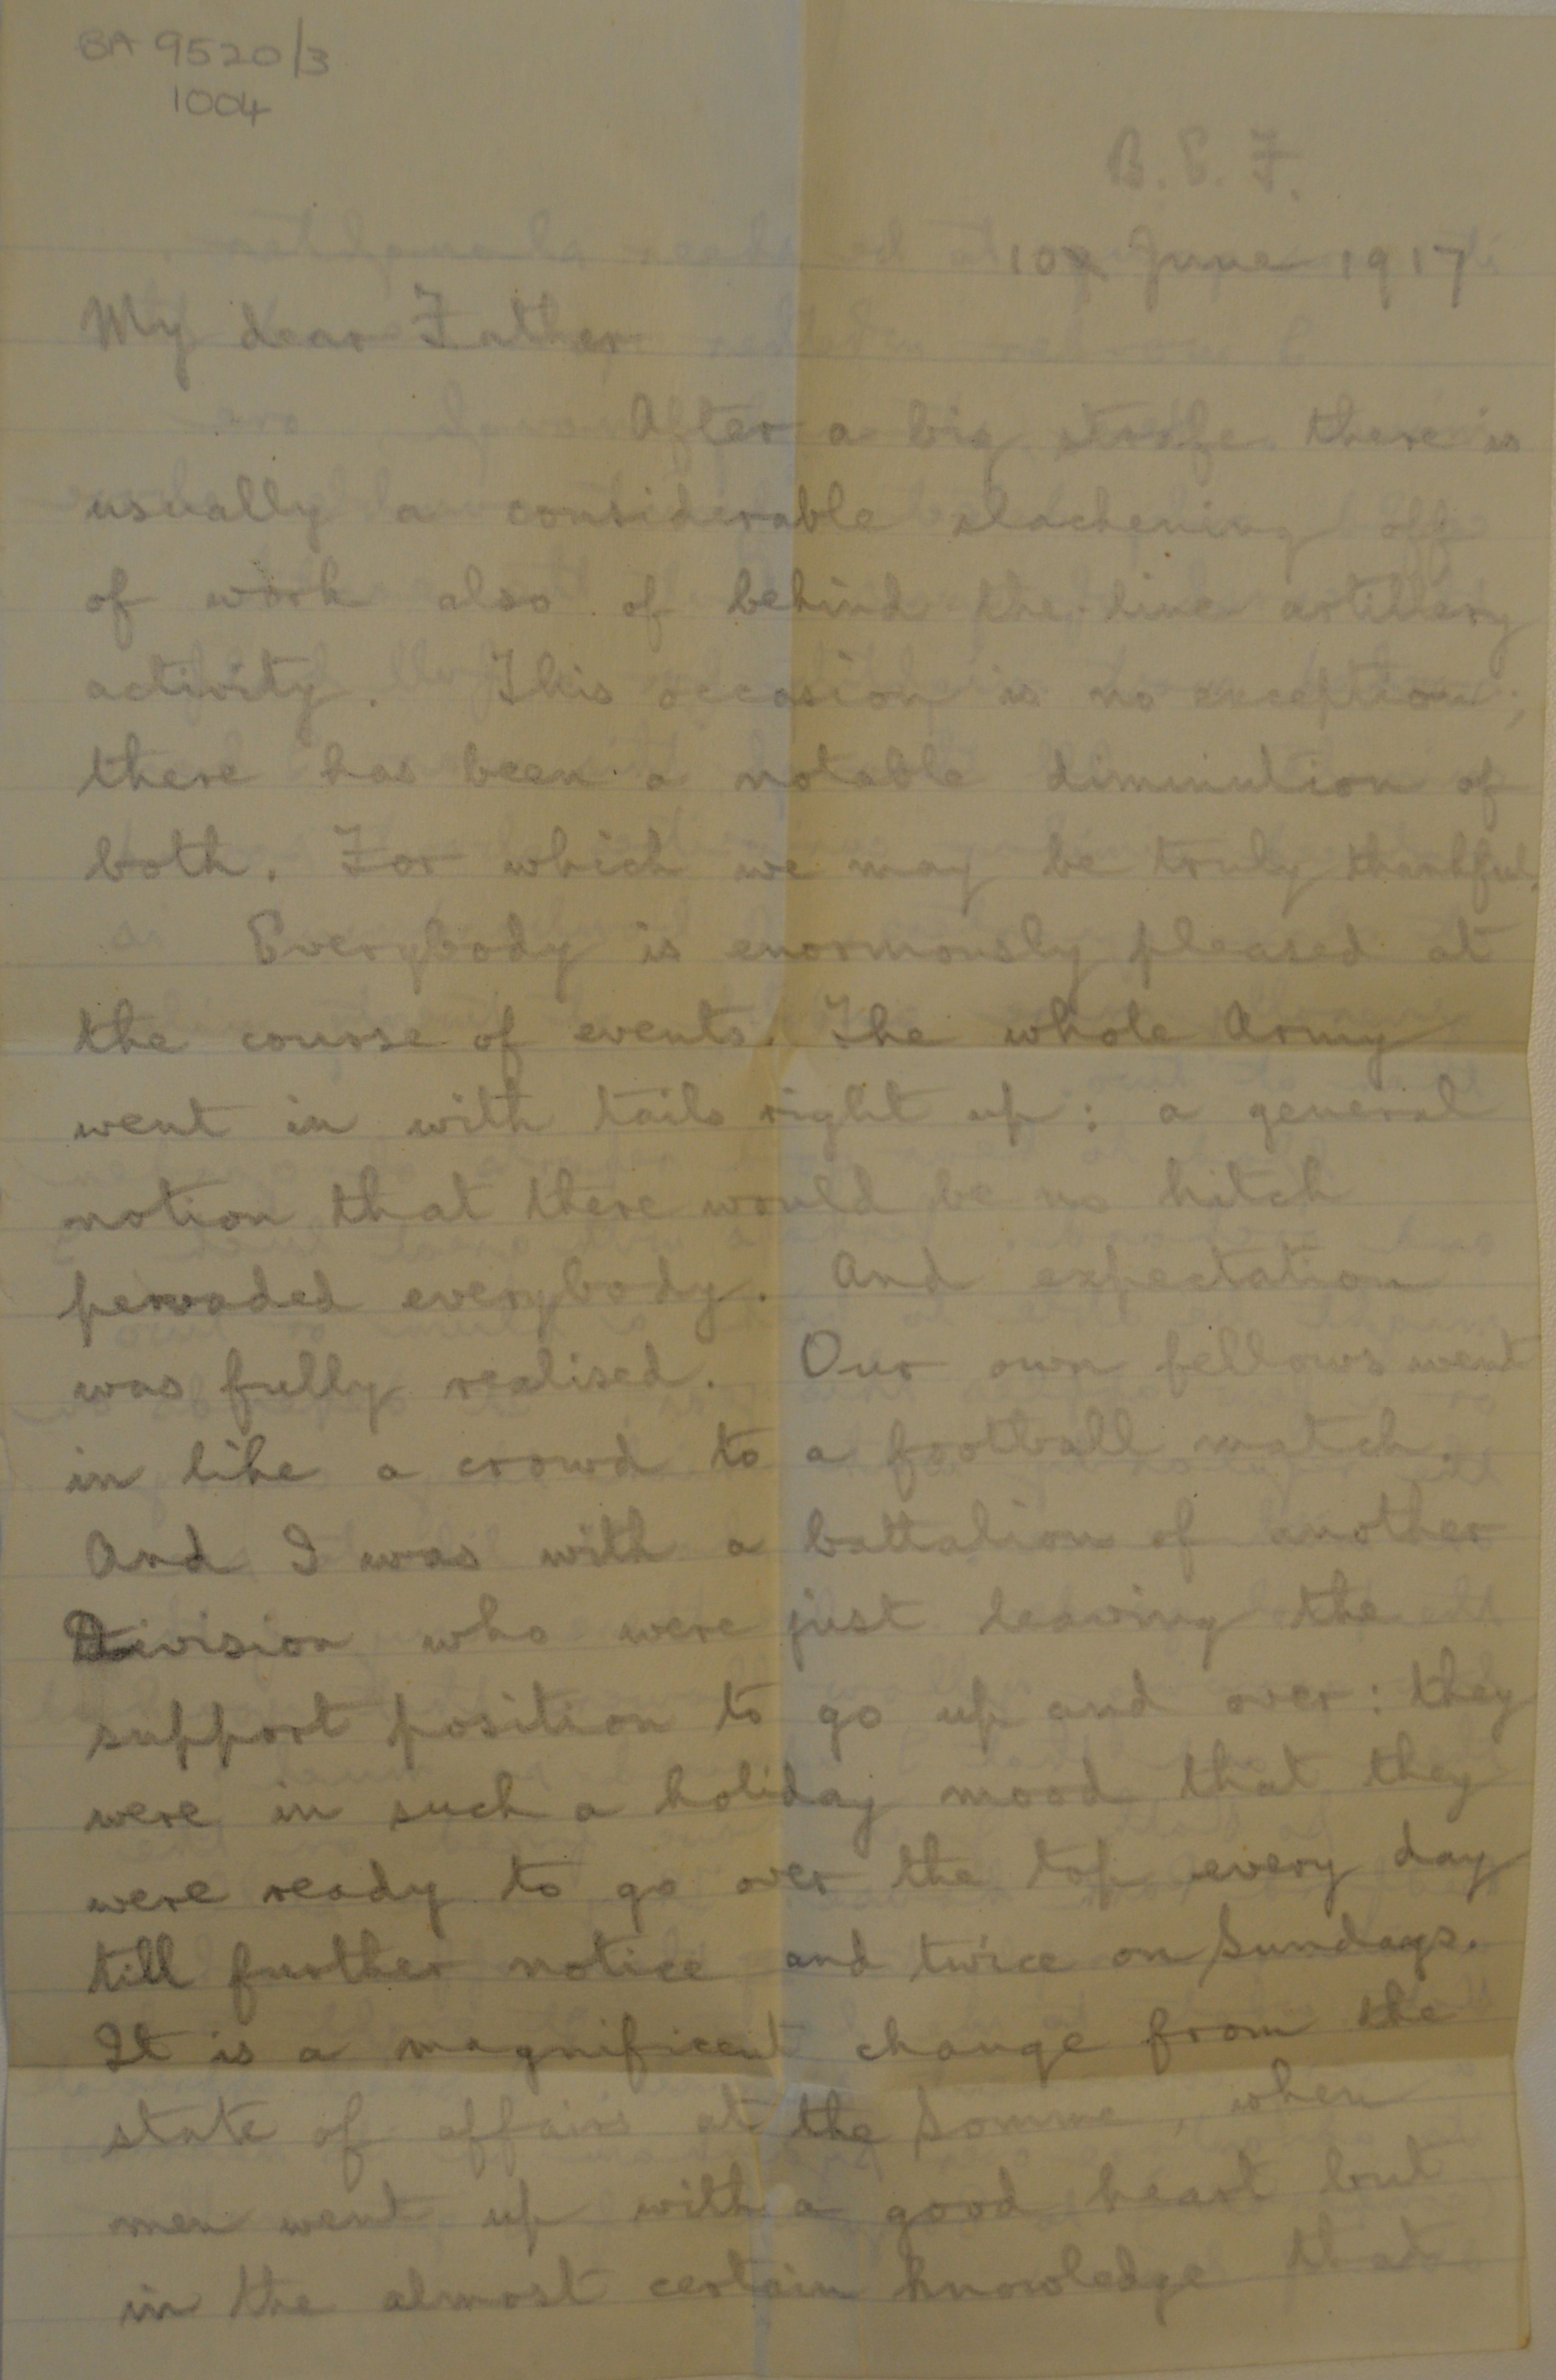 BA 9520/3
1004
B. E. F.
10 June 1917
My dear Father
After a big strafe there is
usually a considerable slackening off
of work also of behind the line artillery
activity. This occasion is no exception;
there has been a notable diminution of
both. For which we may be truly thankful.
Everybody is enormously pleased at
the course of events. The whole Army
went in with tails right up: a general
notion that there would be no hitch
pervaded everybody. And expectation
was fully realised. Our own fellows went
in like a crowd to a football match.
And I was with a battalion of another
Division who were just leaving the
support position to go up and over: they
were in such a holiday mood that they
were ready to go over the top every day
till further notice and twice on Sundays.
It is a magnificent change from the
state of affairs at the Somme, when
men went up with a good heart but
in the almost certain knowledge that